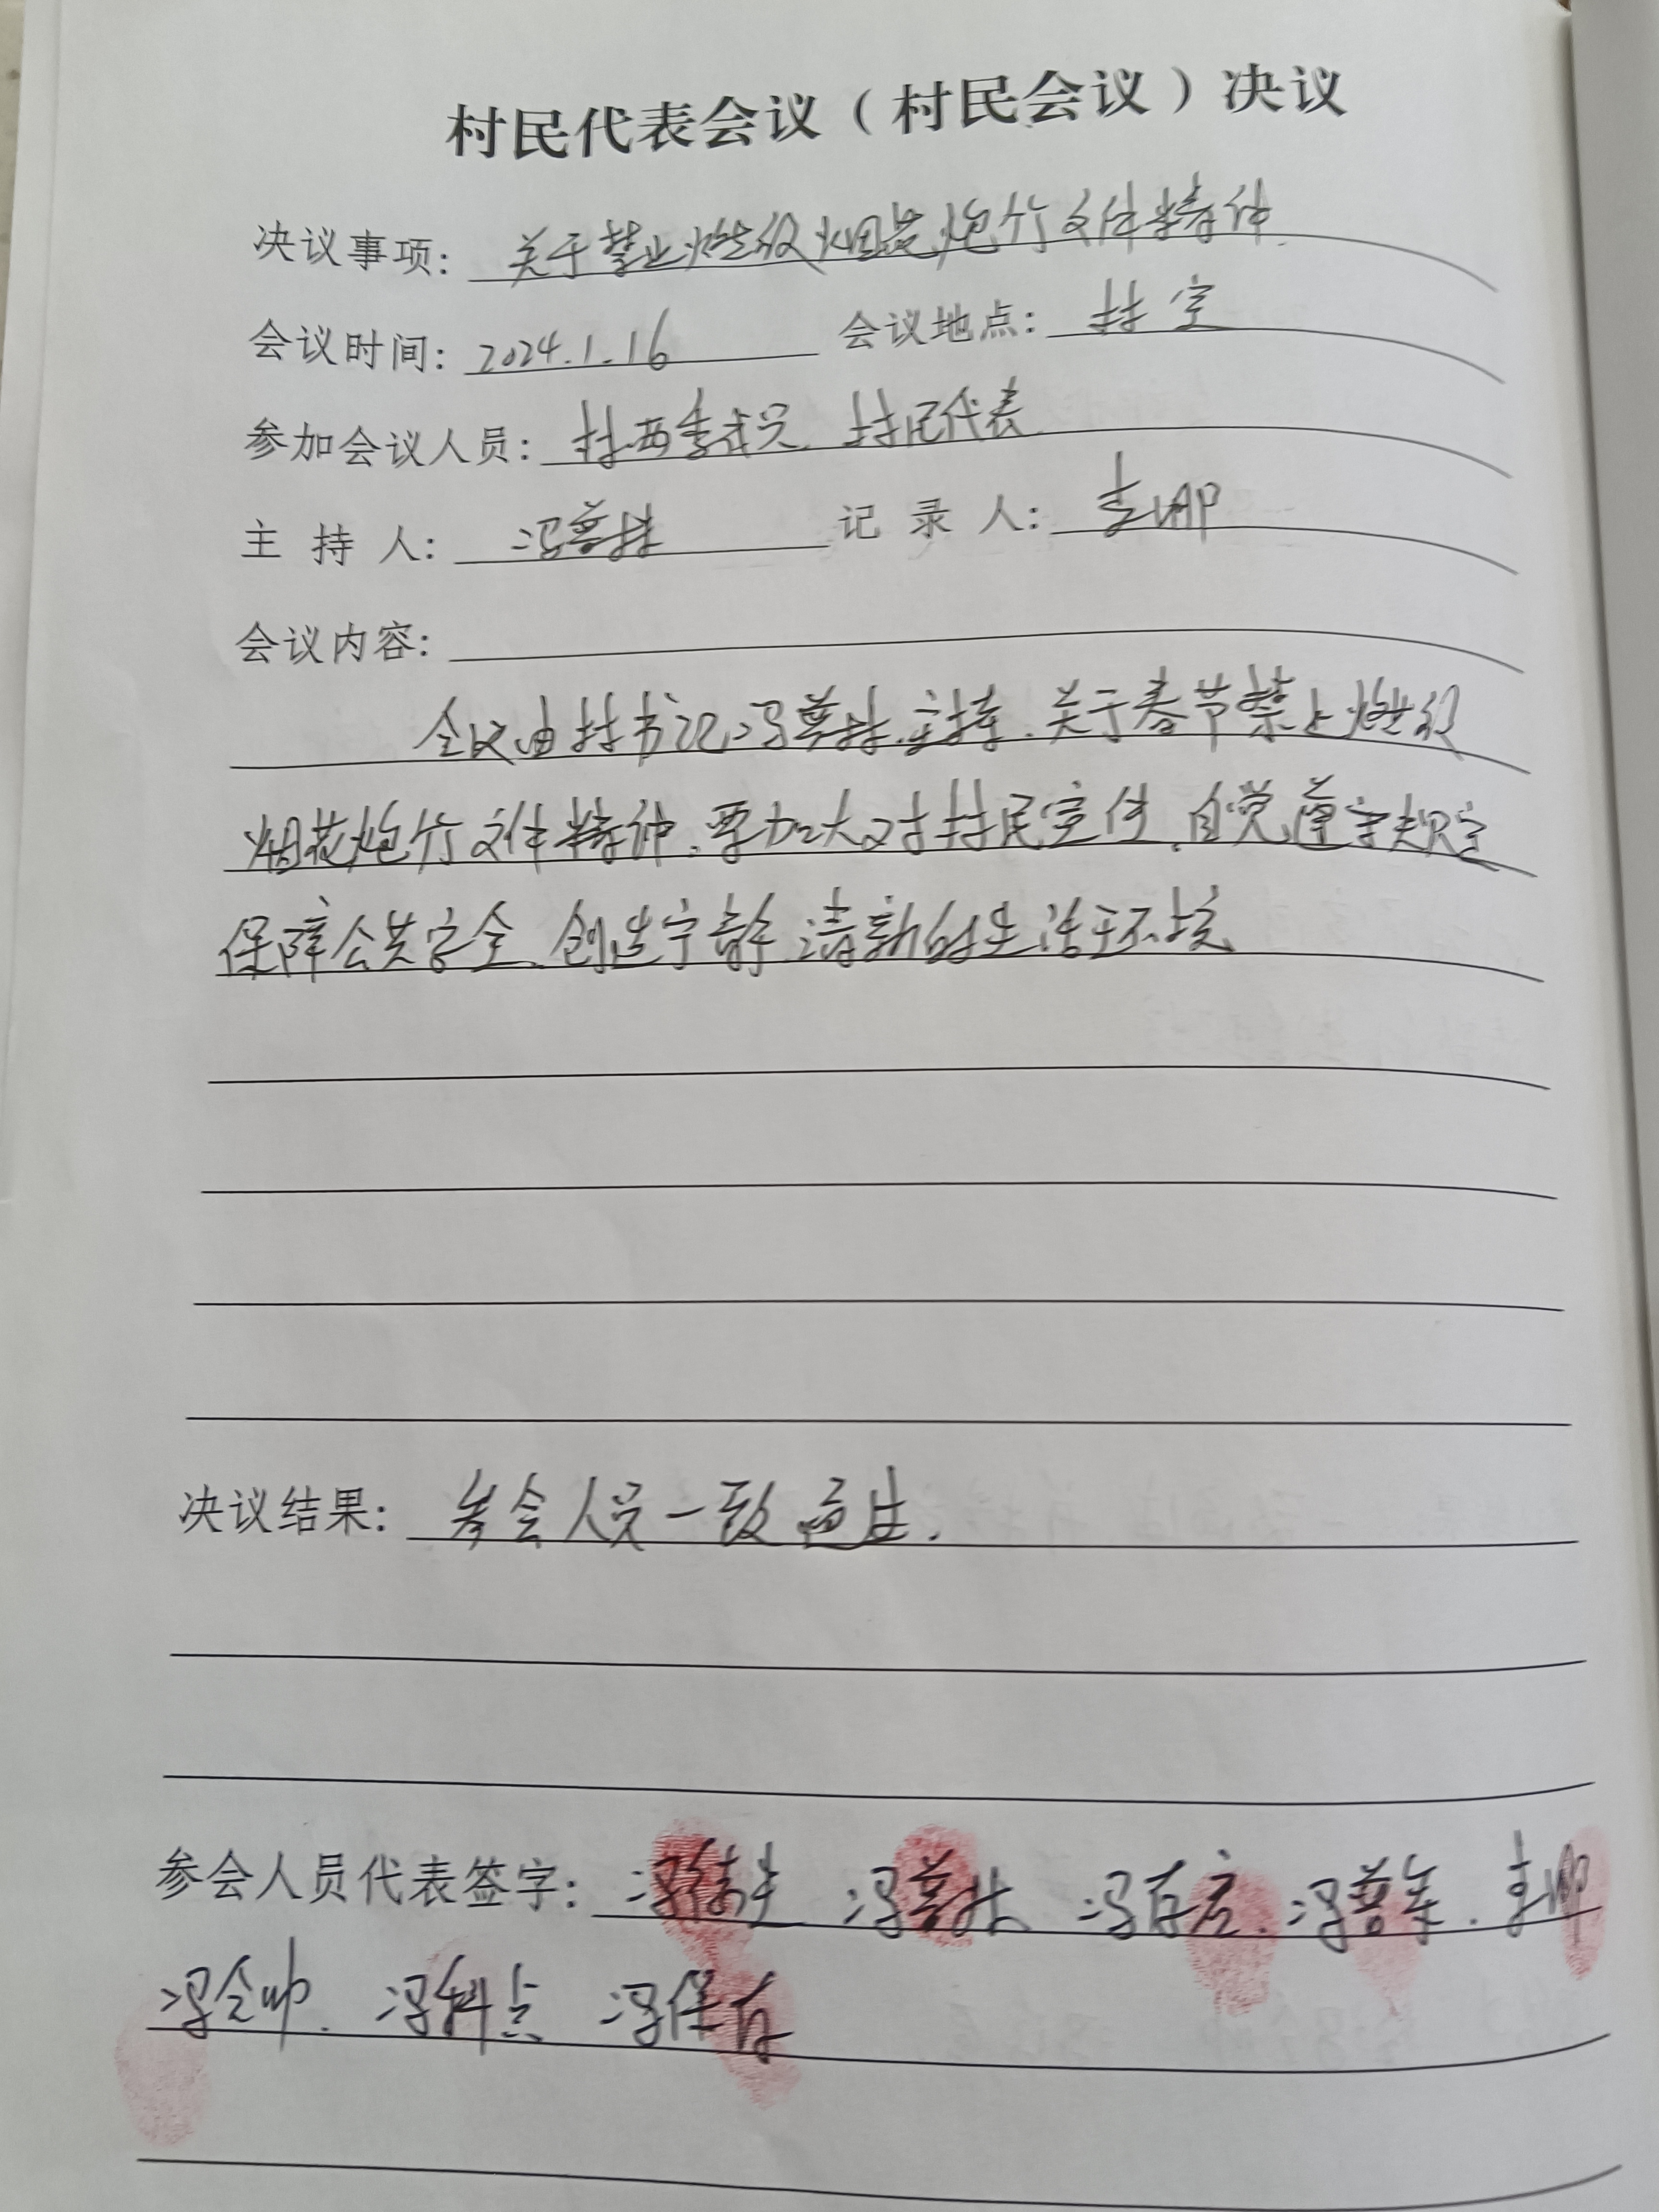 村民代表会议（村民会议）决议
决议事项： 关于禁止燃放烟花炮竹文件精神.
会议时间： 2024.1.16 会议地点： 村室
参加会议人员： 村两委成员. 村民代表
主 持 人： 冯尊林 记 录 人： 李娜
会议内容：
会议由村书记冯尊林主持.关于春节禁止燃放
烟花炮竹文件精神.要加大对村民宣传.自觉遵守规定
保障公共安全、创造宁静清新的生活环境
决议结果： 参会人员一致通过.
参会人员代表签字： 冯 冯尊林 冯存 . 冯尊 . 李娜
冯会 . 冯科 冯保存